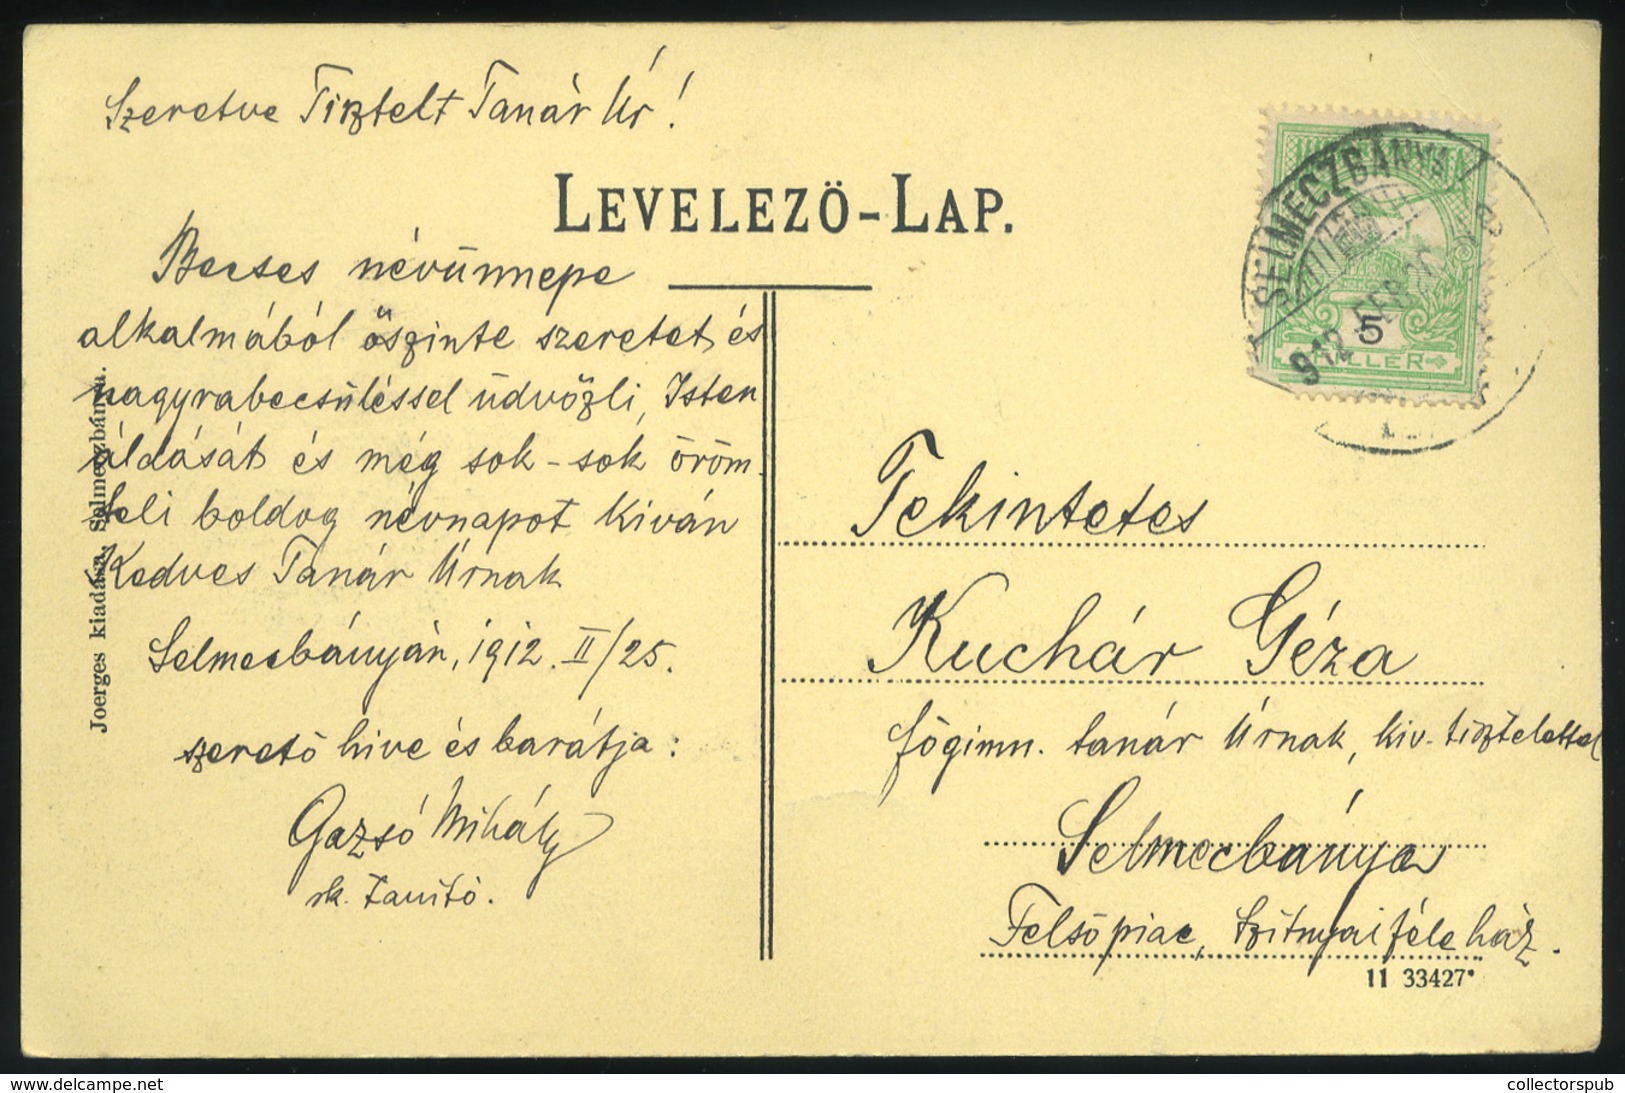 Szeretve Tisztelt Tanár Úr!
LEVELEZÖ-LAP.
Becses névünnepe
alkalmából őszinte szeretet és
nagyrabecsüléssel üdvözli, Isten
áldását és még sok-sok öröm-
teli boldog névnapot kiván
Kedves Tanár Úrnak
Selmecbányán, 1912. II/25.
szerető hive és barátja:
Gazsó Mihály
tanító.
Joerges kiadása, Selmeczbánya.
SELMECZBÁNYA
912 FEB
5
FILLER
Tekintetes
Kuchár Géza
főgimn. tanár Úrnak, kiv. tisztelettel
Selmecbánya
Felsőpiac, Szitnyai féle ház.
11 33427*
www.delcampe.net
collectorspub